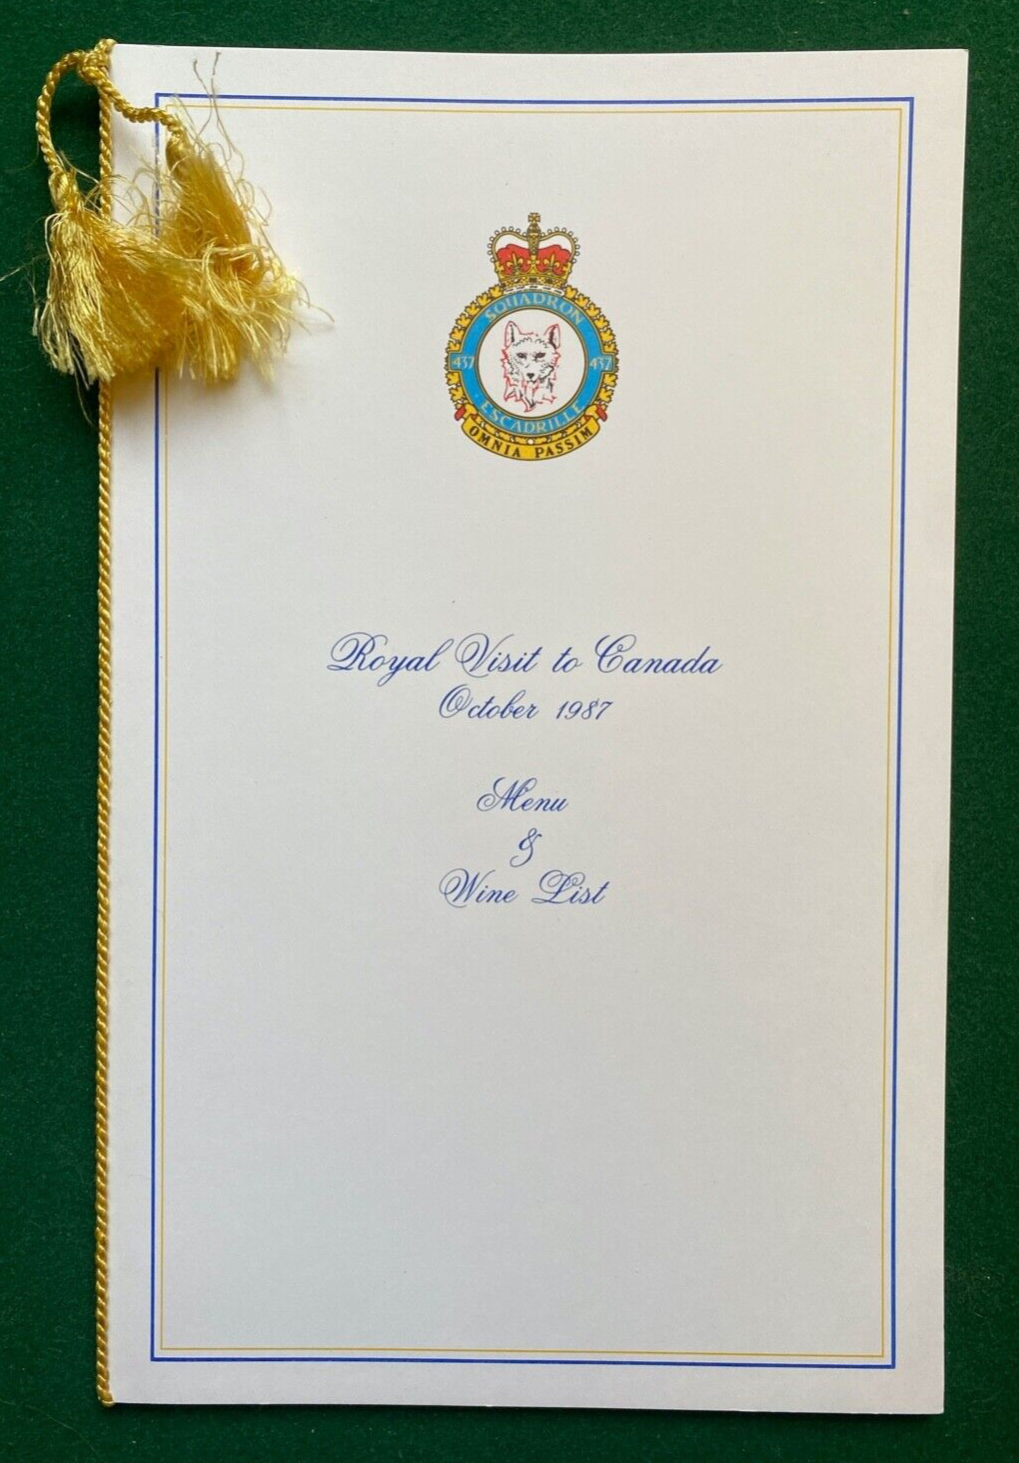 SQUADRON
437 437
ESCADRILLE
OMNIA PASSIM
Royal Visit to Canada
October 1987
Menu
&
Wine List